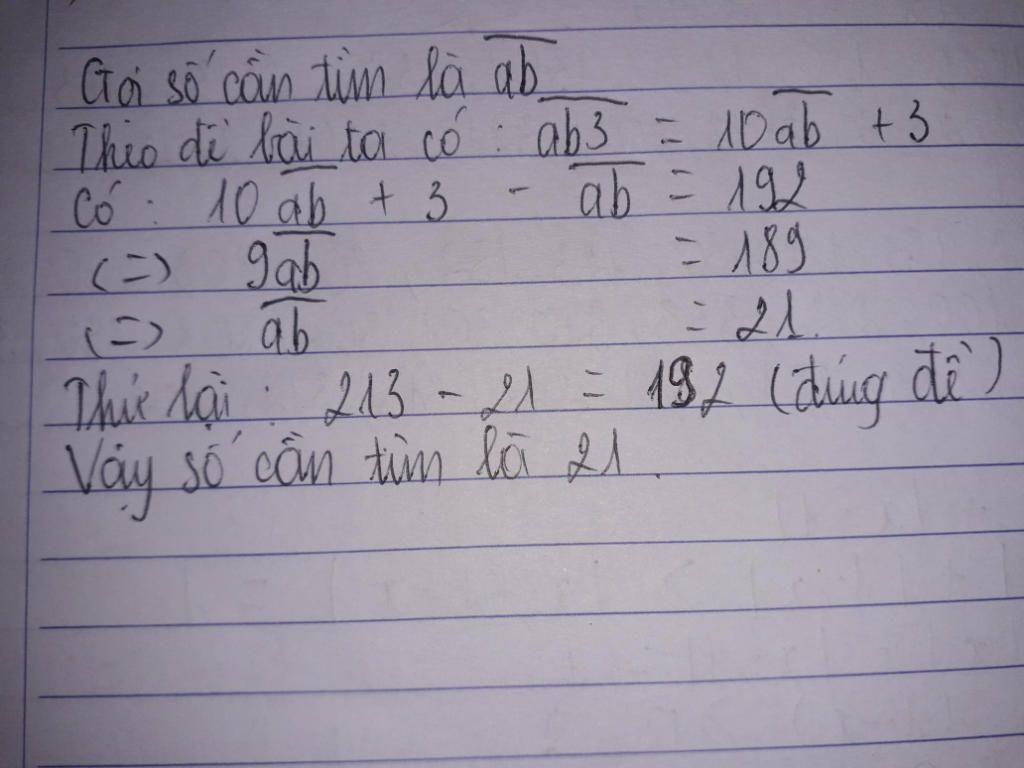 Gọi số cần tìm là \overline{ab}
Theo đề bài ta có : \overline{ab3} = 10\overline{ab} + 3
Có : 10\overline{ab} + 3 - \overline{ab} = 192
(=) 9\overline{ab} = 189
(=) \overline{ab} = 21.
Thử lại : 213 - 21 = 192 (đúng đề)
Vậy số cần tìm là 21.